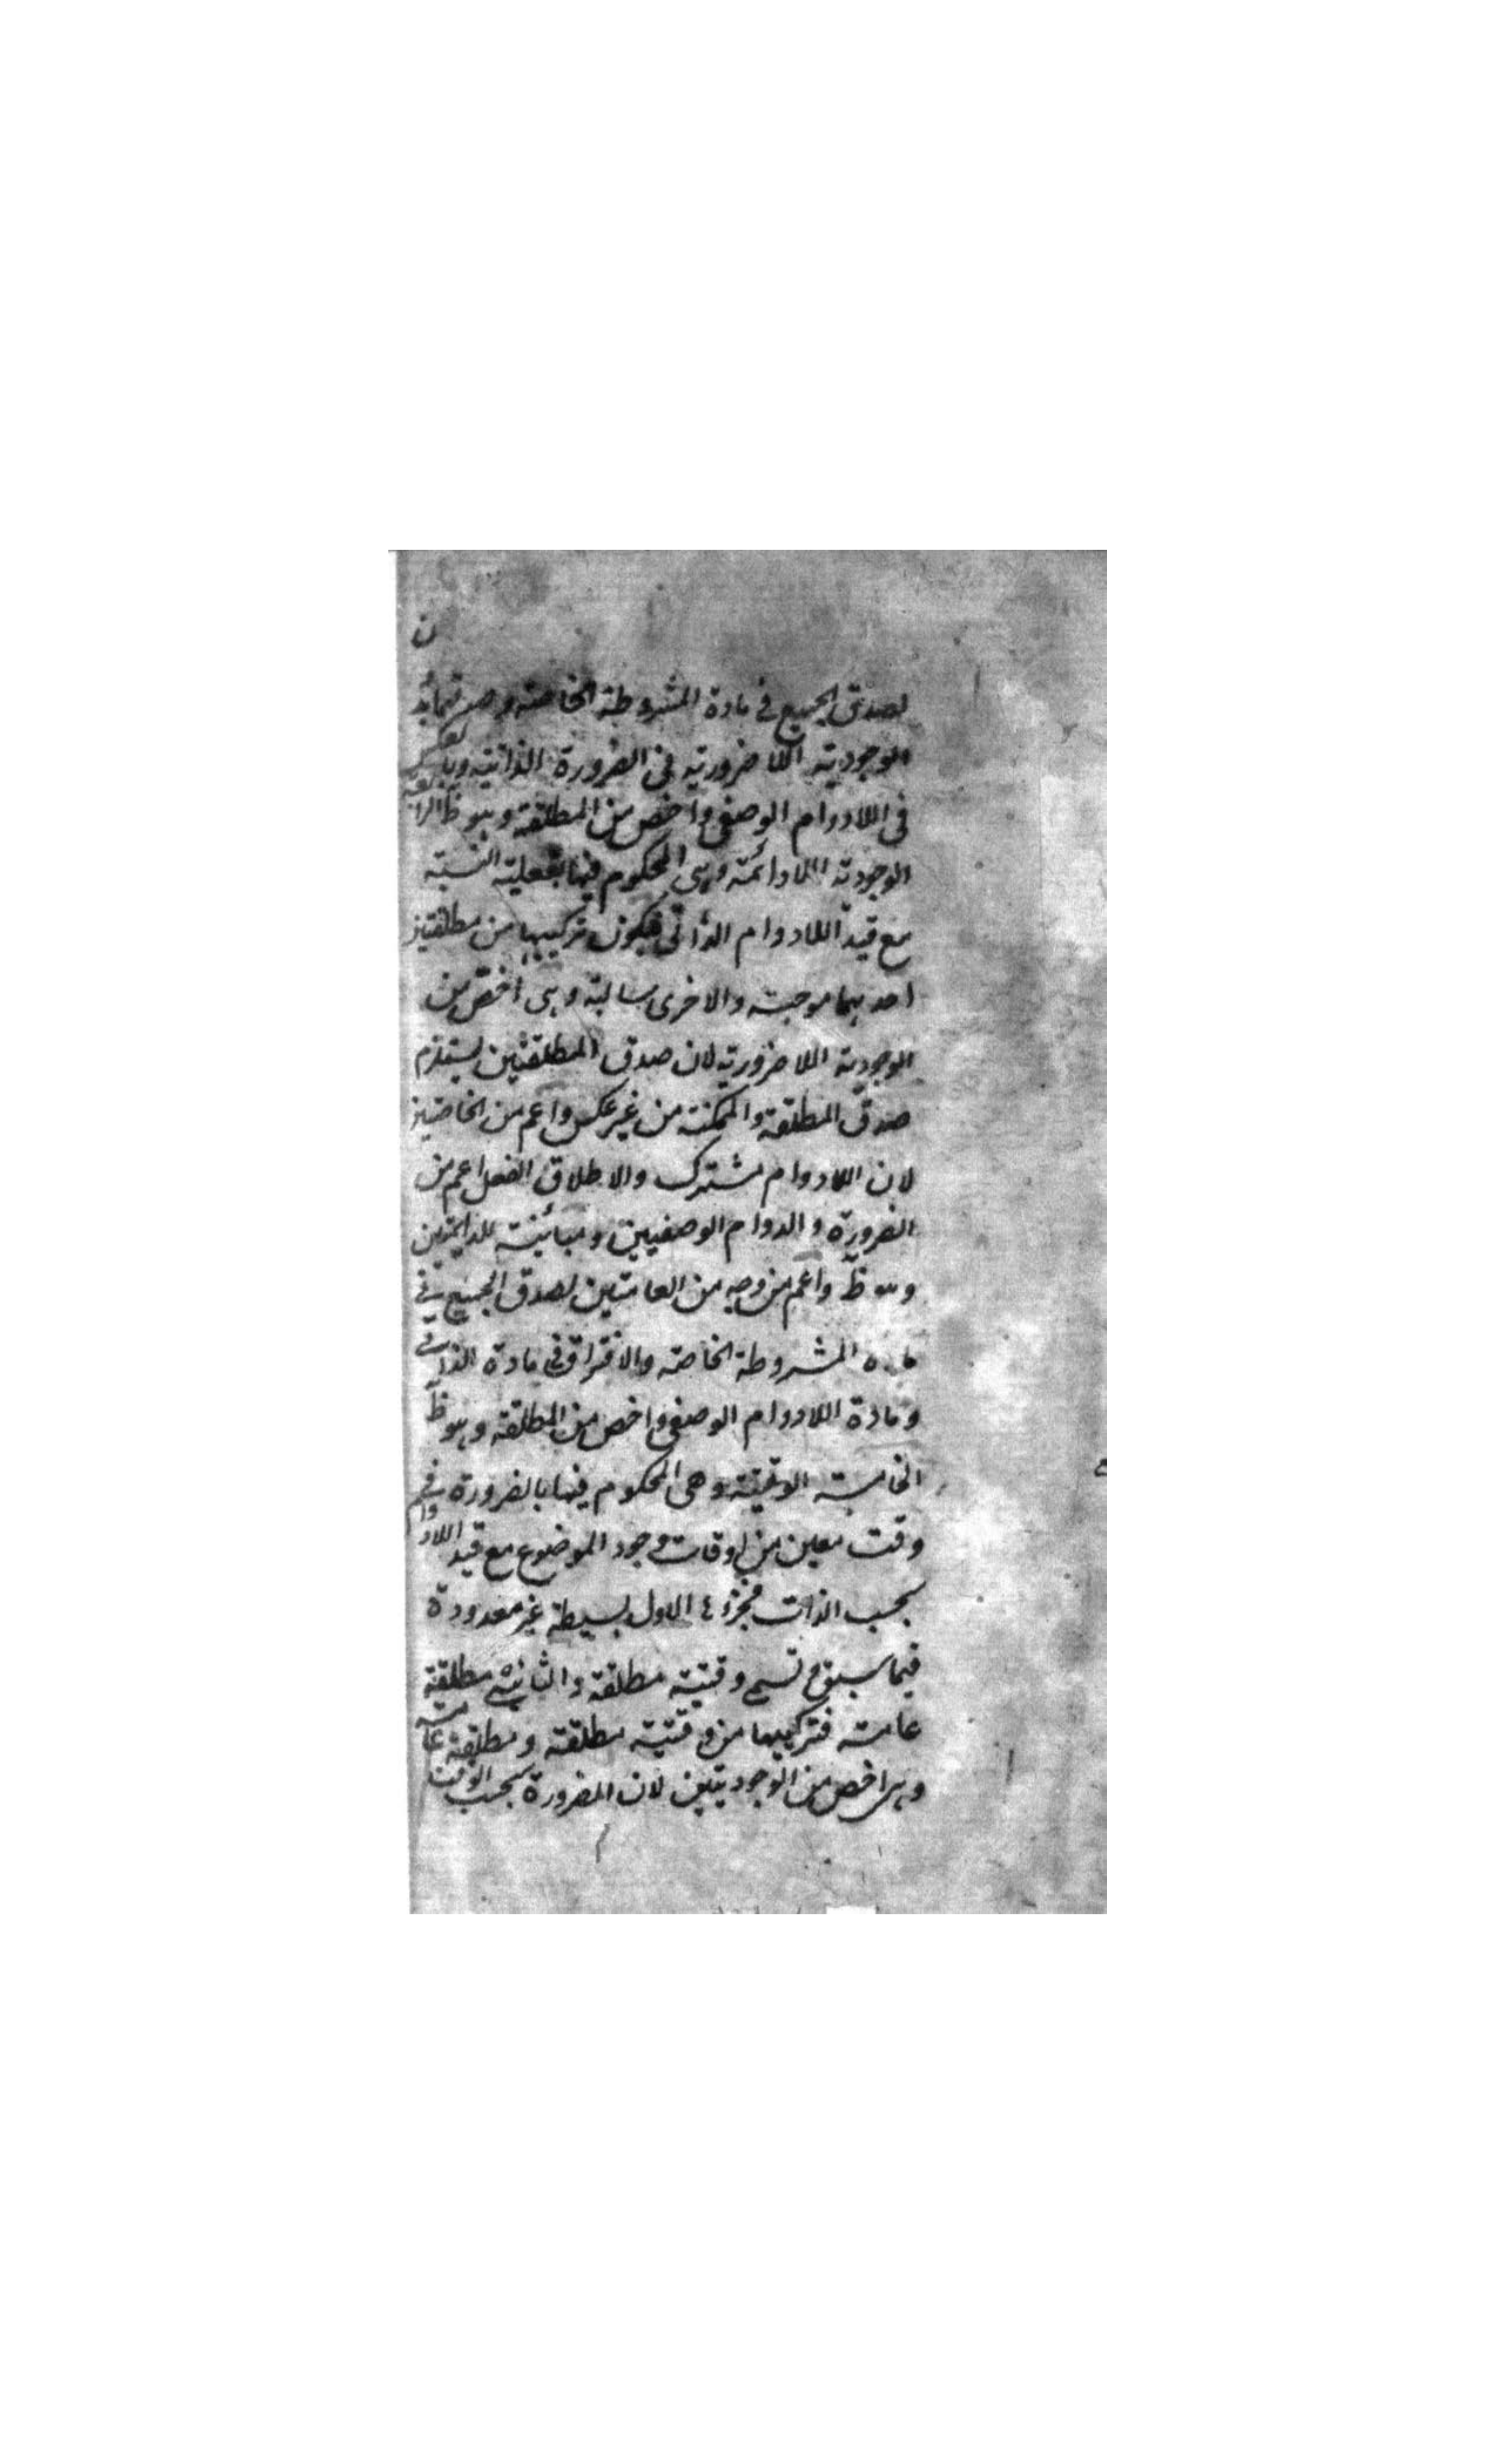 لصدق الجميع في مادة المشروطة الخاصة وصدقهما بدون
الوجودية اللاضرورية في الضرورة الذاتية وبالعكس
في اللادوام الوصفي واخص من المطلقة وهو ظ الرابعة
الوجودية اللادائمة وهى المحكوم فيها بفعلية النسبة
مع قيد اللادوام الذاتى فيكون تركيبها من مطلقتين
احديهما موجبة والاخرى سالبة وهى اخص من
الوجودية اللاضرورية لان صدق المطلقتين يستلزم
صدق المطلقة والممكنة من غير عكس واعم من الخاصتين
لان اللادوام مشترك والاطلاق الفعل اعم من
الضرورة والدوام الوصفيين ومبائنة للدائمتين
وهو ظ واعم من وجه من العامتين لصدق الجميع في
مادة المشروطة الخاصة والافتراق في مادة الذاتي
ومادة اللادوام الوصفي واخص من المطلقة وهو ظ
الخامسة الوقتية وهى المحكوم فيها بالضرورة في
وقت معين من اوقات وجود الموضوع مع قيد اللادوام
بحسب الذات فجزء الاول بسيطة غير معدودة
فيما سبق تسمى وقتية مطلقة والثانية مطلقة
عامة فتركيبها من وقتية مطلقة ومطلقة عامة
وهى اخص من الوجوديتين لان الضرورة بحسب الوقت